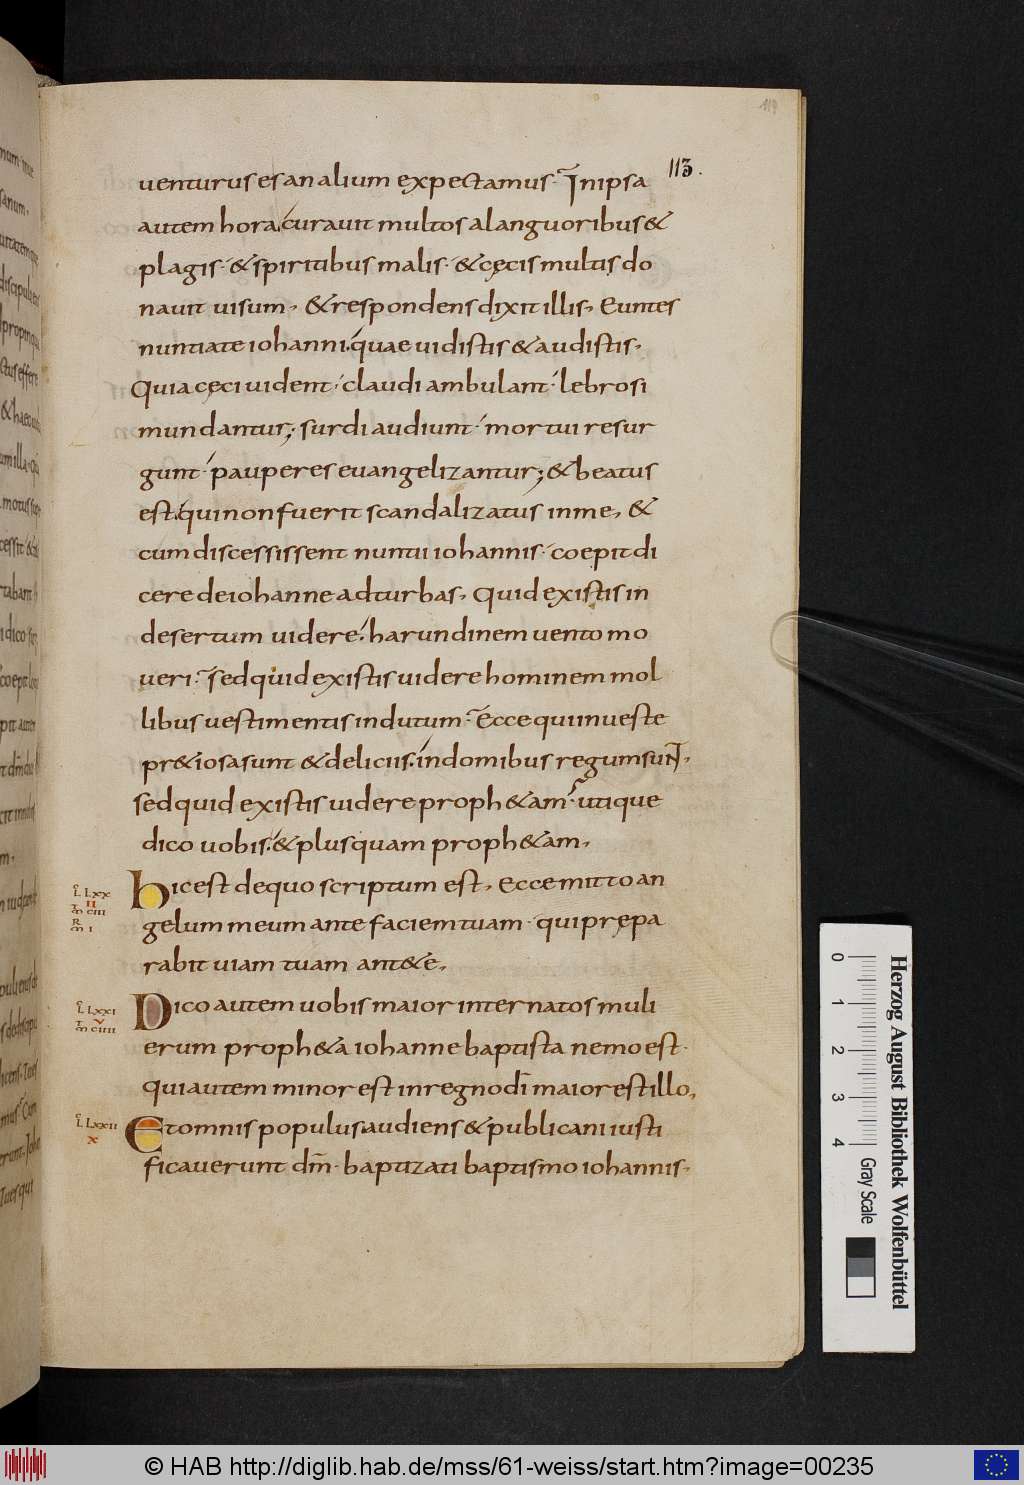 119
113.
uenturus es an alium expectamus· In ipsa
autem hora curauit multos a languoribus &
plagis· & spiritibus malis· & cęcis multis do
nauit uisum, & respondens dixit illis, Euntes
nuntiate iohanni. quae uidistis & audistis,
Quia cęci uident· claudi ambulant· lebrosi
mundantur; surdi audiunt· mortui resur
gunt· pauperes euangelizantur; & beatus
est. qui non fuerit scandalizatus in me, &
cum discessissent nuntii iohannis· coepit di
cere de iohanne ad turbas, Quid existis in
desertum uidere. harundinem uento mo
ueri? sed quid existis uidere hominem mol
libus uestimentis indutum· Ecce qui in ueste
pr&iosa sunt & deliciis. in domibus regum sunt,
sed quid existis uidere proph&am· utique
dico uobis. & plus quam proph&am,
hic est de quo scriptum est, ecce mitto an
gelum meum ante faciem tuam· qui prępa
rabit uiam tuam ante te,
Dico autem uobis maior inter natos muli
erum proph&a iohanne baptista nemo est·
qui autem minor est in regno dī maior est illo,
Et omnis populus audiens & publicani iusti
ficauerunt dm̄· baptizati baptismo iohannis,
L LXX
II
m CIII
R
m I
L LXXI
V
m CIIII
L LXXII
X
0 1 2 3 4 Gray Scale
Herzog August Bibliothek Wolfenbüttel
© HAB http://diglib.hab.de/mss/61-weiss/start.htm?image=00235